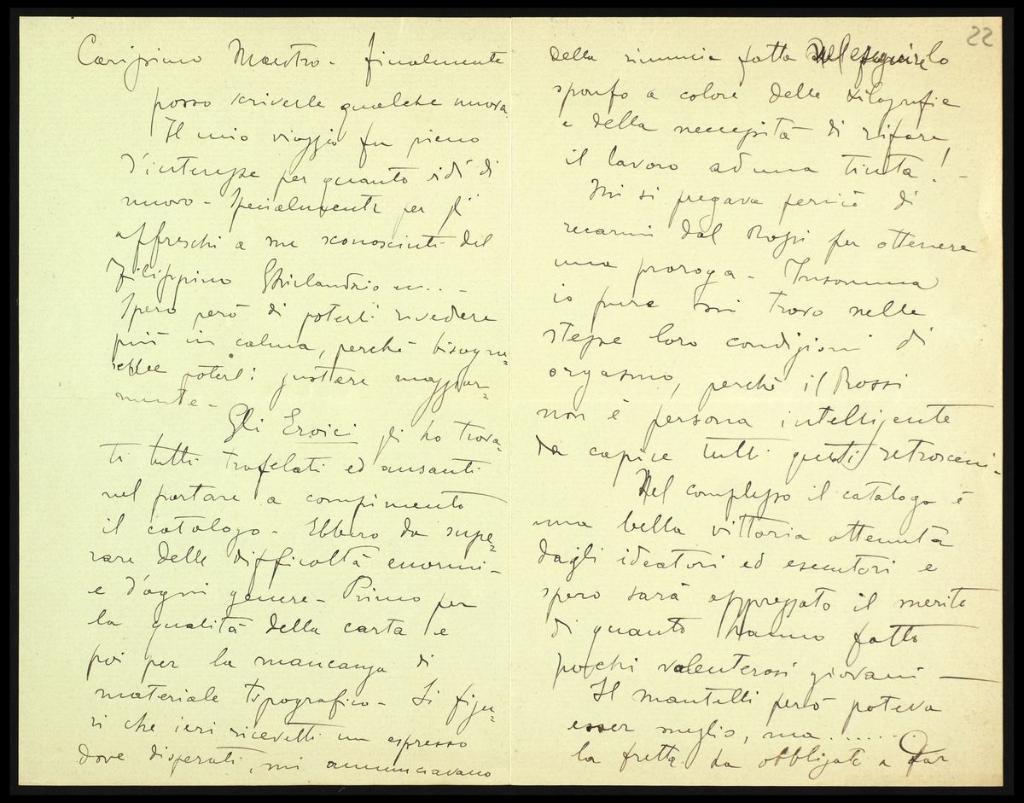 Carissimo Maestro - finalmente
posso scriverle qualche nuova.
Il mio viaggio fu pieno
d'interesse per quanto vidi di
nuovo - Specialmente per gli
affreschi a me sconosciuti del
Filippino Ghirlandaio
Spero però di poterli rivedere
più in calma, perché bisogne-
rebbe poterli gustare maggior-
mente -
Gli Eroici gli ho trova-
ti tutti trafelati ed ansanti
nel portare a compimento
il catalogo - Ebbero da supe-
rare delle difficoltà enormi -
e d'ogni genere - Primo per
la qualità della carta e
poi per la mancanza di
materiale tipografico - Si figu-
ri che ieri ricevetti un espresso
dove disperati, mi annunciavano
22
della rinuncia fatta eseguire lo
spunto a colore delle xilografie
e della necessità di rifare,
il lavoro ad una tinta! -
Mi si pregava perciò di
recarmi dal Rossi per ottenere
una proroga - Insomma
io pure mi trovo nelle
stesse loro condizioni di
orgasmo, perché il Rossi
non è persona intelligente
da capire tutti questi retrosceni -
Nel complesso il catalogo è
una bella vittoria ottenuta
dagli ideatori ed esecutori e
spero sarà apprezzato il merito
di quanto hanno fatto
pochi valenterosi giovani -
Il mantelli però poteva
esser meglio, ma .......
la fretta ha obbligato a far